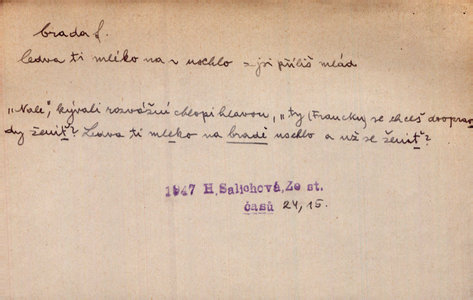 brada f.
ledva ti mléko na ~ uschlo = jsi příliš mlád
„Nale", kývali rozvážní chlopi hlavou, „ty (Francku) se chceš dooprav
dy ženiť? Ledva ti mléko na bradě uschlo a už se ženiť?
1947 H. Salichová, Ze st.
časů 24, 15.